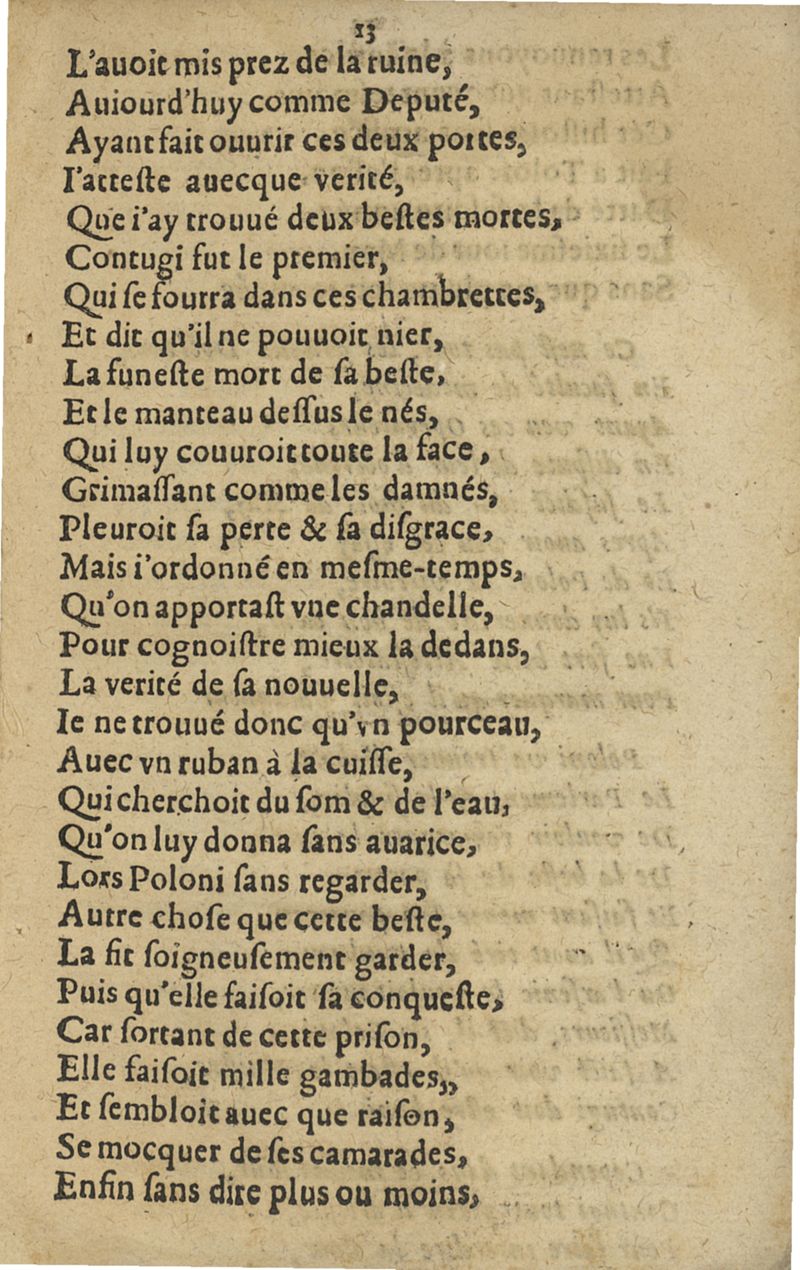 13
L'auoit mis prez de la ruine,
Auiourd'huy comme Deputé,
Ayant fait ouurir ces deux portes,
I'atteſte auecque verité,
Que i'ay trouué deux beſtes mortes,
Contugi fut le premier,
Qui ſe fourra dans ces chambrettes,
Et dit qu'il ne pouuoit nier,
La funeſte mort de ſa beſte,
Et le manteau deſſus le nés,
Qui luy couuroit toute la face,
Grimaſſant comme les damnés,
Pleuroit ſa perte & ſa diſgrace,
Mais i'ordonné en meſme-temps,
Qu'on apportaſt vne chandelle,
Pour cognoiſtre mieux la dedans,
La verité de ſa nouuelle,
Ie ne trouué donc qu'vn pourceau,
Auec vn ruban à la cuiſſe,
Qui cherchoit du ſom & de l'eau,
Qu'on luy donna ſans auarice,
Lors Poloni ſans regarder,
Autre choſe que cette beſte,
La fit ſoigneuſement garder,
Puis qu'elle faiſoit ſa conqueſte,
Car ſortant de cette priſon,
Elle faiſoit mille gambades,,
Et ſembloit auec que raiſon,
Se mocquer de ſes camarades,
Enfin ſans dire plus ou moins,